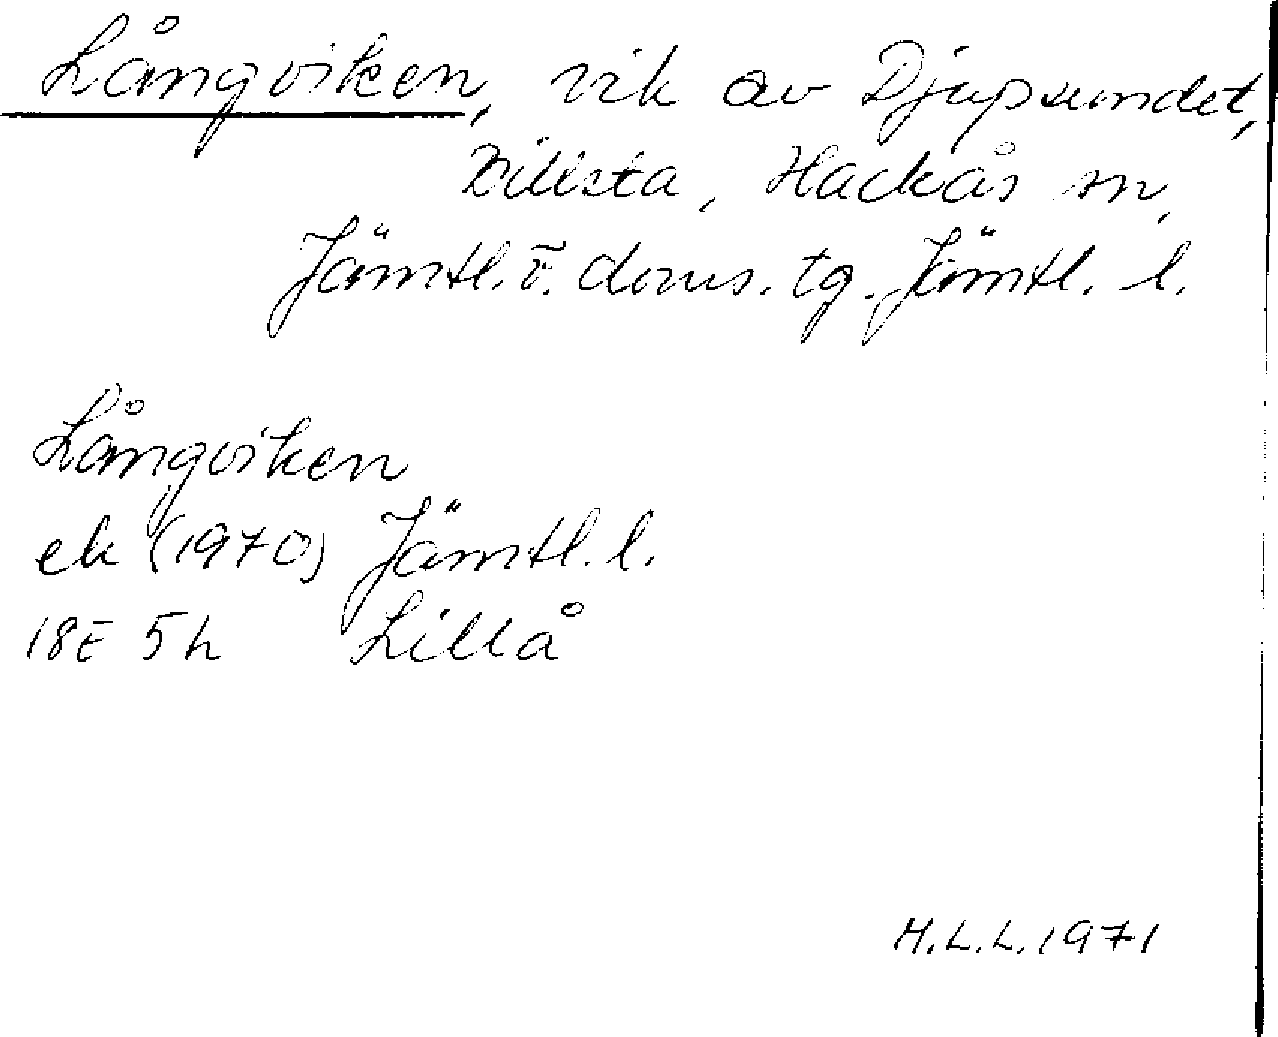 Långviken, vik av Djupsundet,
Billsta, Hackås sn,
Jämtl. v. doms. tg. Jämtl. l.
Långviken
ek (1970) Jämtl. l.
18E 5h Lillå
H.L.L. 1971